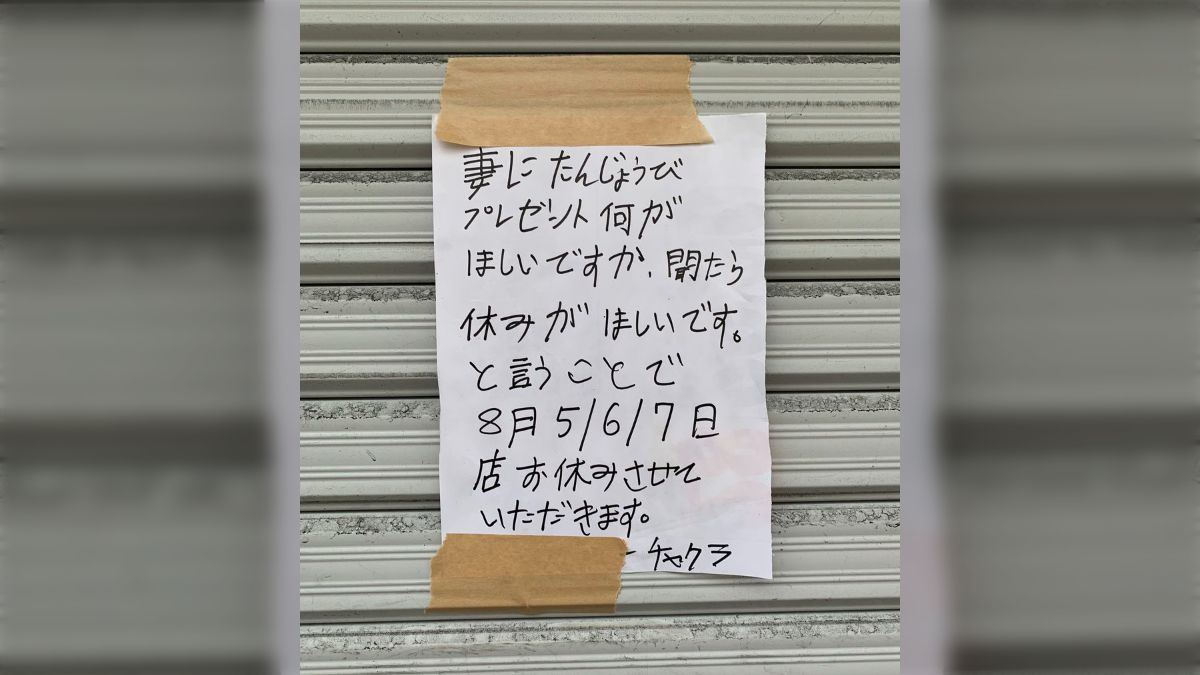 妻に たんじょうび
プレゼント 何が
ほしいですか、聞たら
休みが ほしいです。
と言うことで
8月 5/6/7日
店 お休みさせて
いただきます。
ー チャクラ